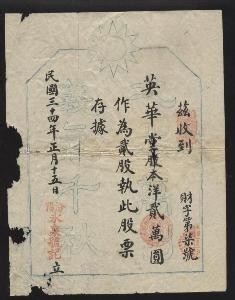 茲收到
財字第柒號
英華堂股本洋貳萬圓
作為貳股執此股票
存據
民國三十四年正月十五日
立